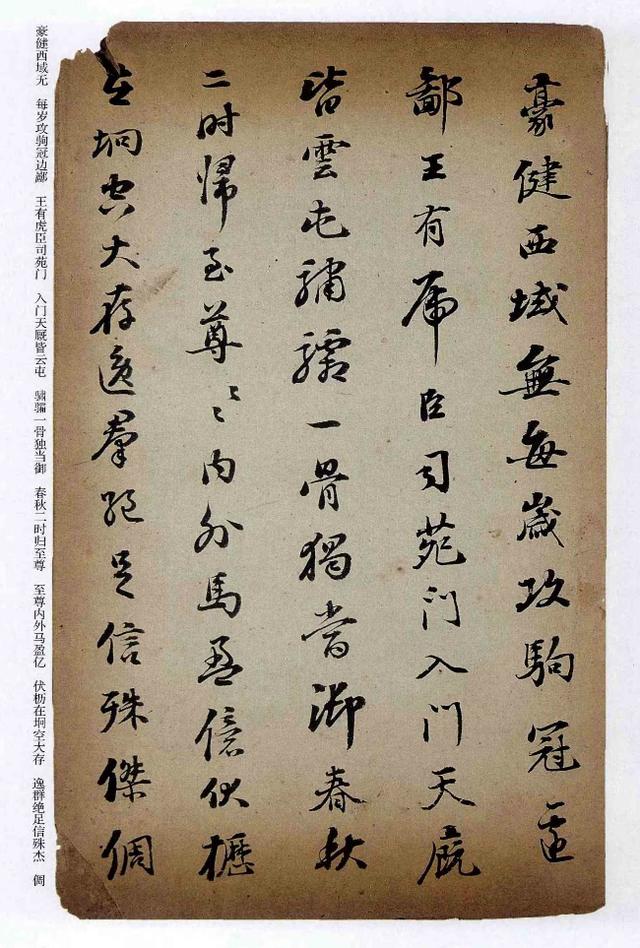 豪健西域無每歲攻駒冠邊
鄙王有虎臣司苑門入門天廐
皆雲屯驌驦一骨獨當御春秋
二时歸至尊〻〻内外馬盈億伏櫪
在坰空大存逸羣絕足信殊傑倜
豪健西域无 每岁攻驹冠边鄙 王有虎臣司苑门 入门天厩皆云屯 骕骦一骨独当御 春秋二时归至尊 至尊内外马盈亿 伏枥在坰空大存 逸群绝足信殊杰 倜